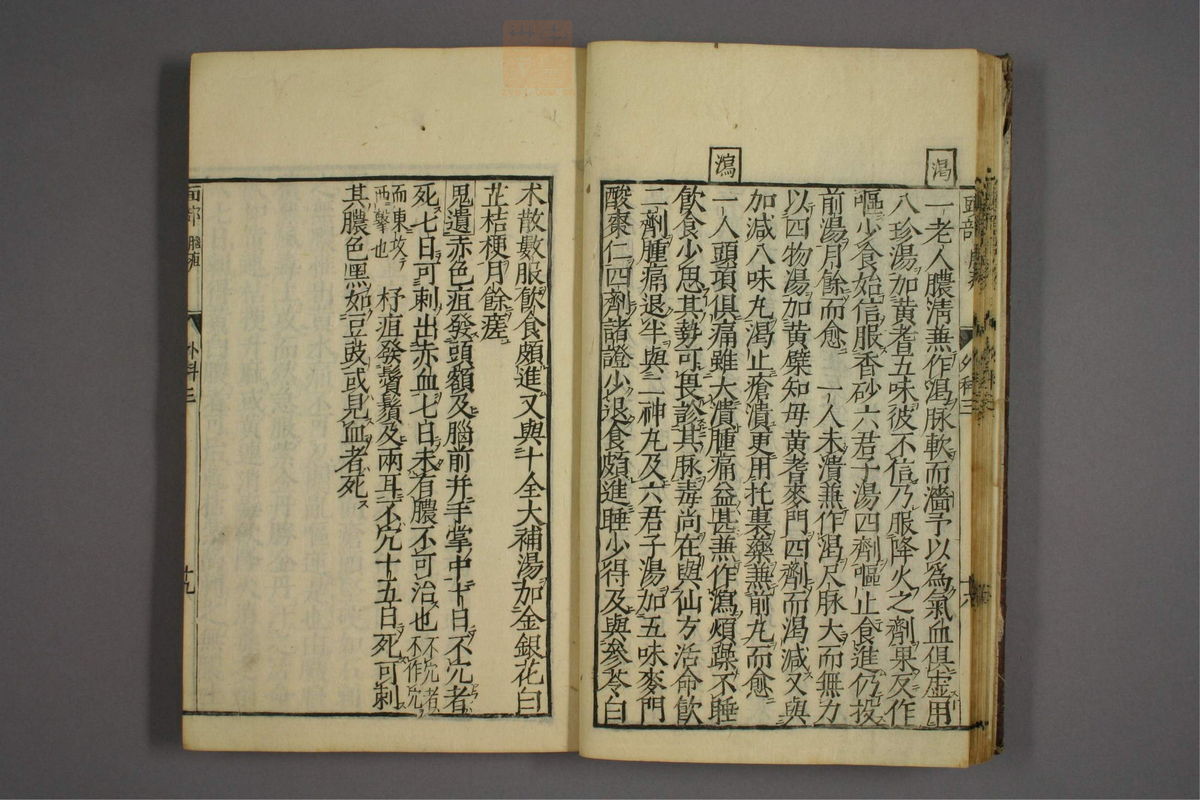 渇
瀉
一老人膿清兼作渇脉軟而濇予以爲氣血俱虚用
八珍湯加黄耆五味彼不信乃服降火之劑果反作
嘔少食始信服香砂六君子湯四劑嘔止食進仍投
前湯月餘而愈 一人未潰兼作渇尺脉大而無力
以四物湯加黄蘗知母黄耆麥門四劑而渇減又與
加減八味丸渇止瘡潰更用托裏藥兼前丸而愈
一人頭項俱痛雖大潰腫痛益甚兼作瀉煩躁不睡
飲食少思其勢可畏診其脉毒尚在與仙方活命飲
二劑腫痛退半與二神丸及六君子湯加五味麥門
酸棗仁四劑諸證少退食頗進睡少得及與參苓白
术散數服飲食頗進又與十全大補湯加金銀花白
芷桔梗月餘瘥
鬼遺赤色疽發頭額及腦前并手掌中十日不穴者
死七日可刺出赤血七日未有膿不可治也不穴者不作穴
而東坟西擊也 杼疽發鬢鬚及兩耳不穴十五日死可刺
其膿色黑如豆豉或見血者死
面部
外科三
十九